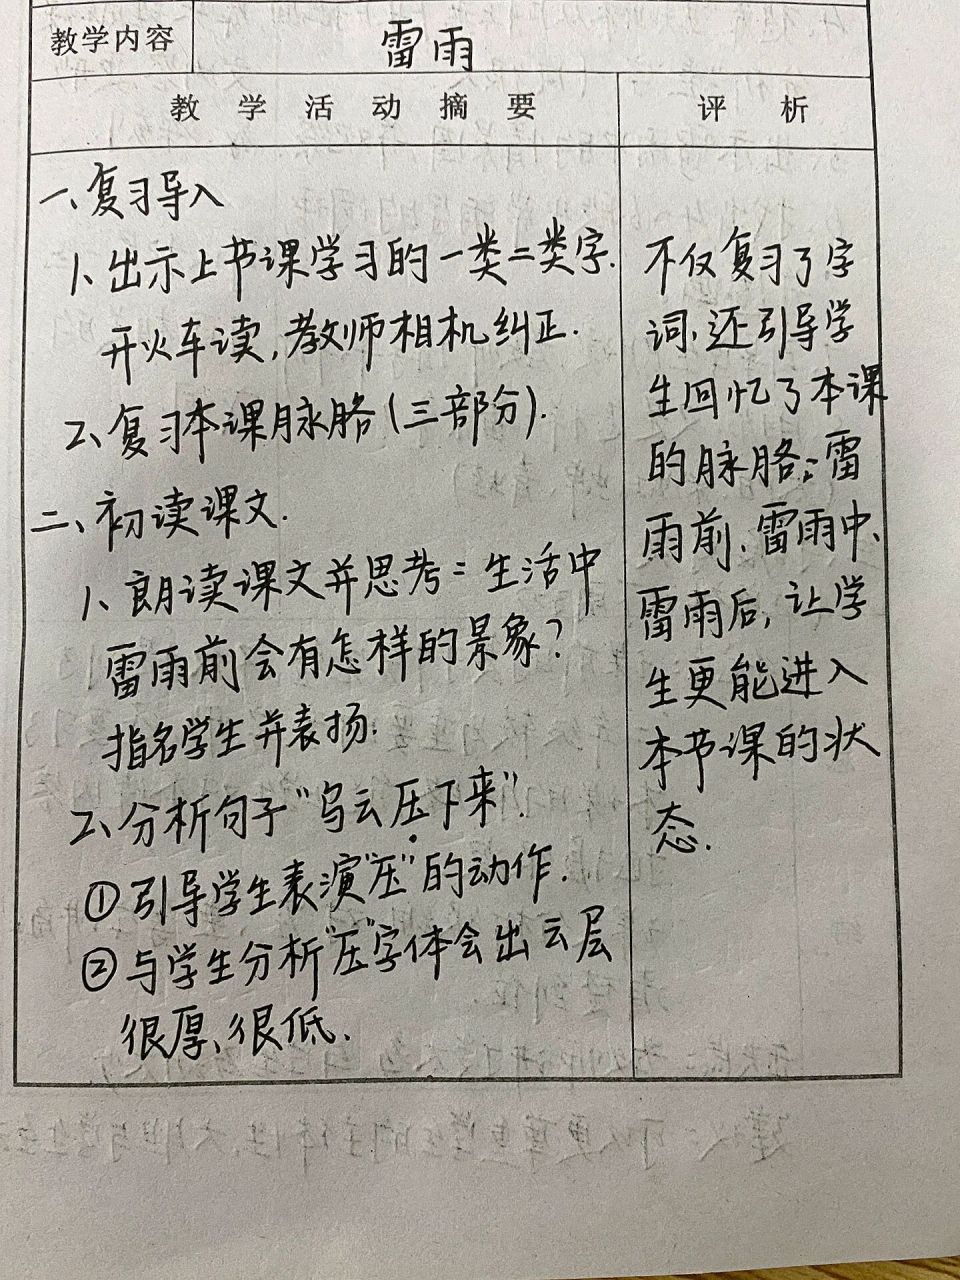 教学内容
雷雨
教学活动摘要
评析
一、复习导入
1、出示上节课学习的一类二类字.
开火车读,教师相机纠正.
2、复习本课脉胳(三部分).
二、初读课文.
1、朗读课文并思考:生活中
雷雨前会有怎样的景象?
指名学生并表扬.
2、分析句子"乌云压下来".
①引导学生表演"压"的动作.
②与学生分析"压"字体会出云层
很厚、很低.
不仅复习了字
词,还引导学
生回忆了本课
的脉胳:雷
雨前、雷雨中、
雷雨后,让学
生更能进入
本节课的状
态.